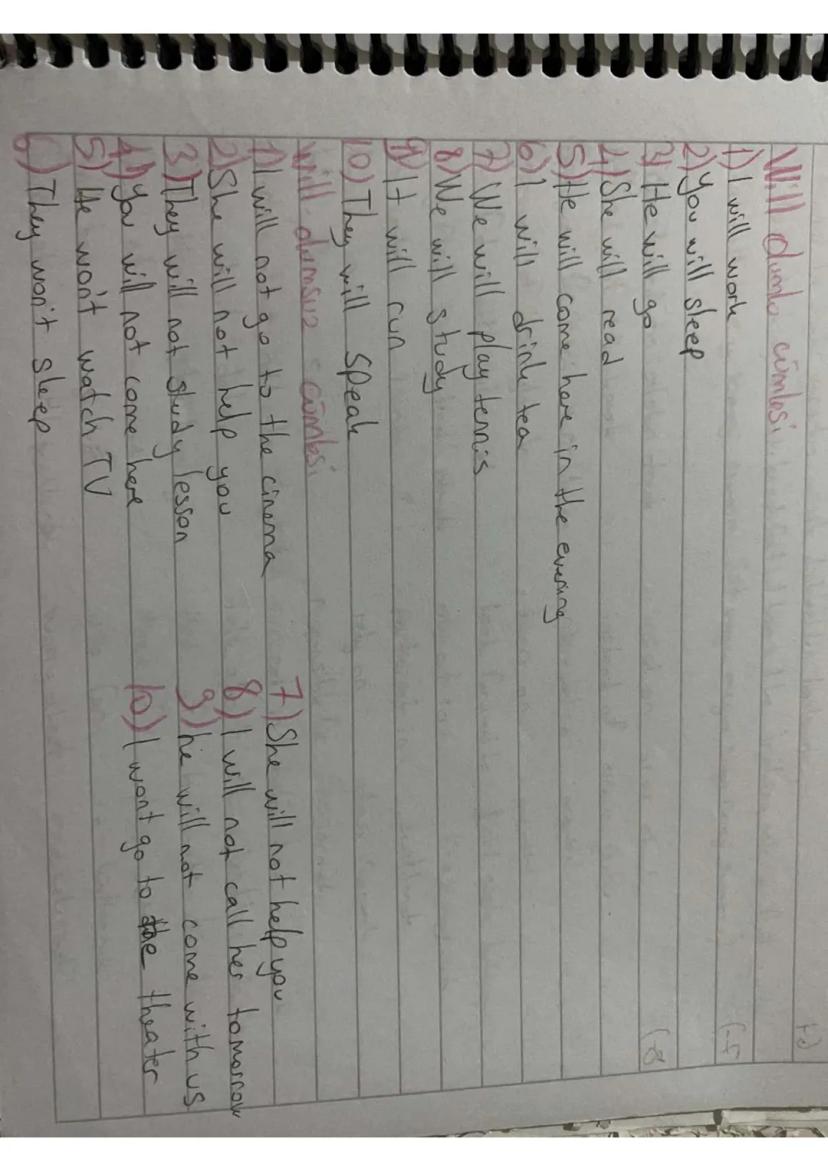 Will olumlu cümlesi
1) I will work
2) you will sleep
3) He will go
4) She will read
5) He will come here in the evening
6) I will drink tea
7) We will play tennis
8) We will study
9) It will run
10) They will speak
will olumsuz cümlesi
1) I will not go to the cinema
2) She will not help you
3) They will not study lesson
4) you will not come here
5) He won't watch TV
6) They won't sleep
7) She will not help you
8) I will not call her tomorrow
9) he will not come with us
10) I won't go to the theater